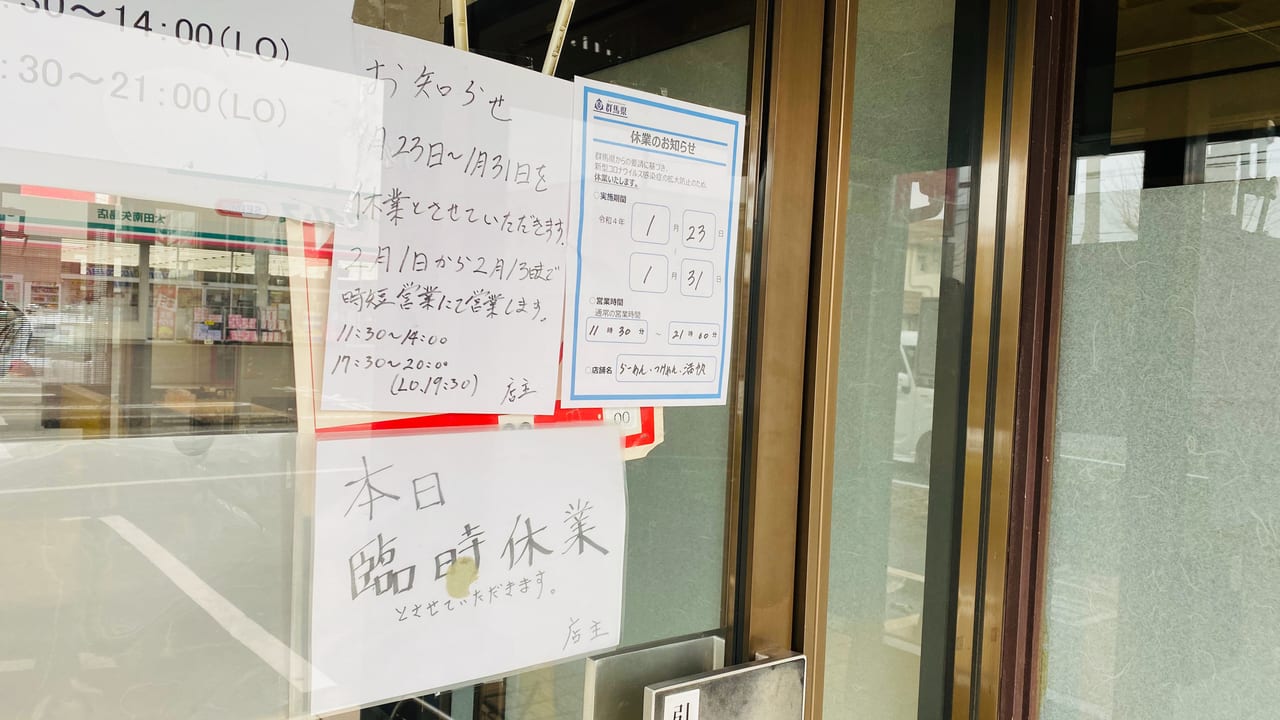 :30～14:00(LO)
:30～21:00(LO)
お知らせ
月23日～1月31日を
休業とさせていただきます。
2月1日から2月13日まで
時短営業にて営業します。
11:30～14:00
17:30～20:00
(LO.19:30)
店主
群馬県
休業のお知らせ
群馬県からの要請に基づき、
新型コロナウイルス感染症の拡大防止のため、
休業いたします。
○実施期間
令和4年 1月23日
～
1月31日
○営業時間
通常の営業時間
11時30分 ～ 21時00分
○店舗名 らーめん・つけめん・活帆
00
本日
臨時休業
とさせていただきます。
店主
太田南矢島店
引